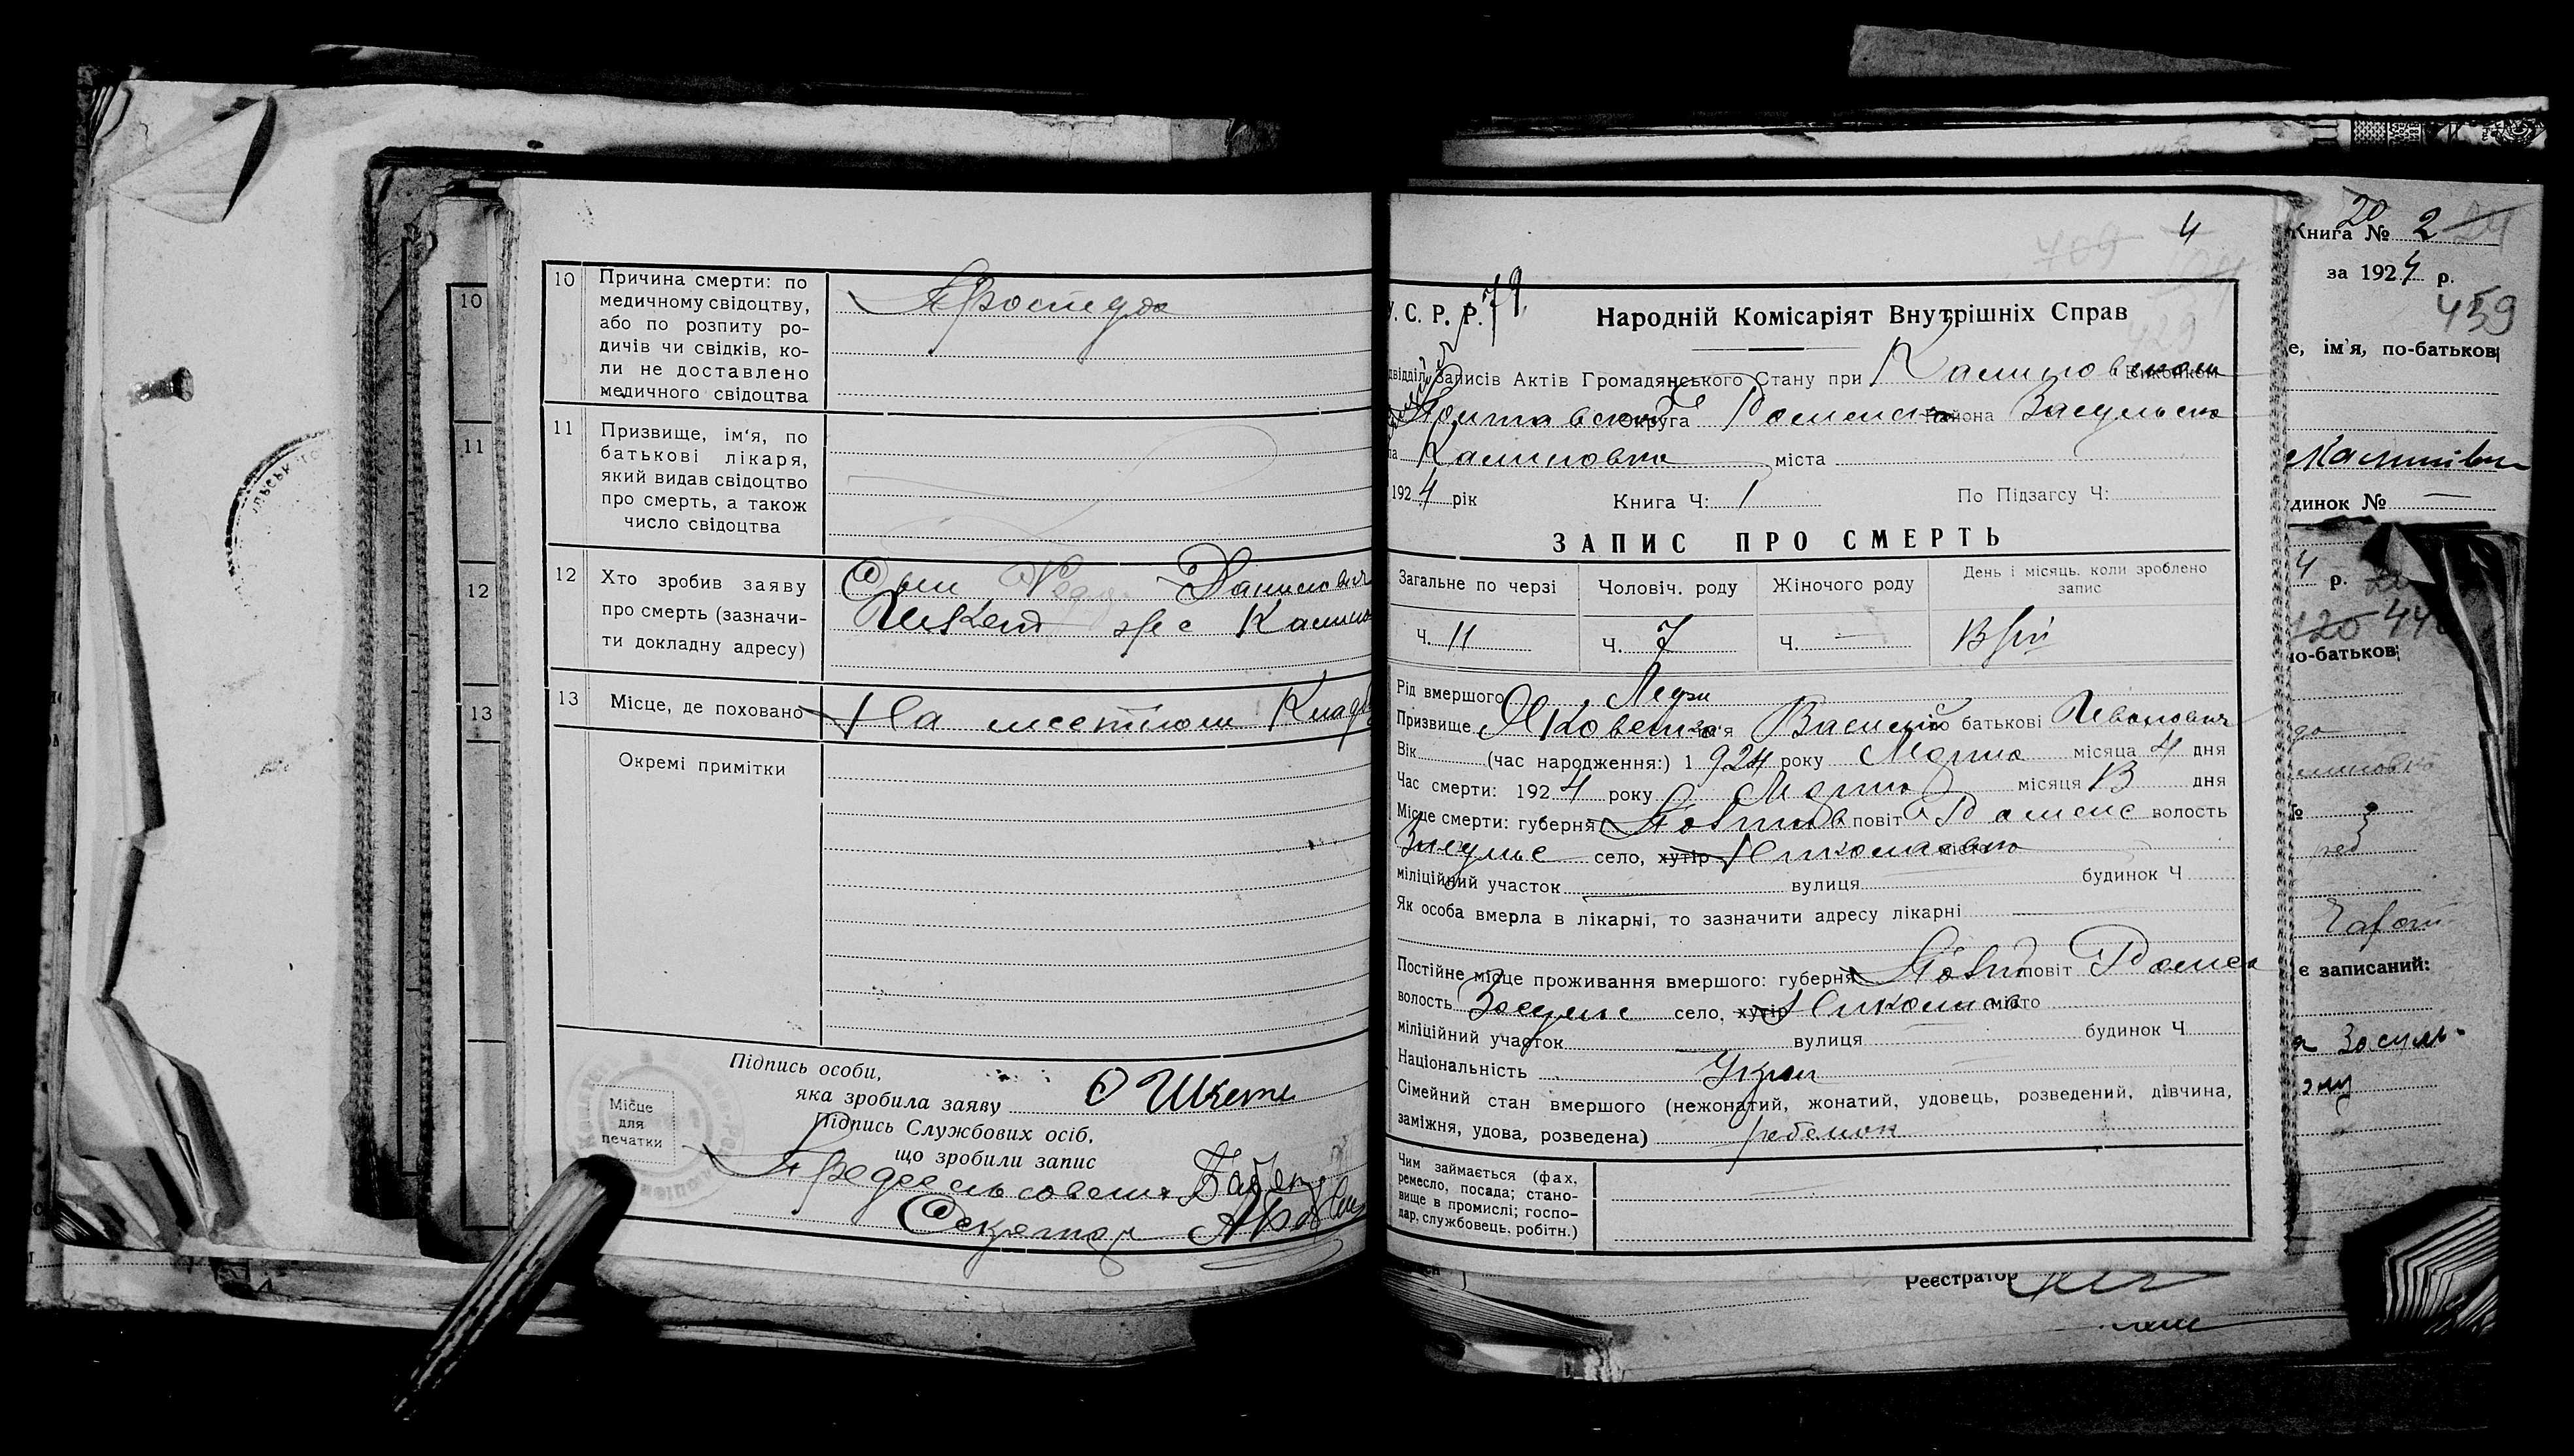 10
11
12
13
10 Причина смерти: по
медичному свідоцтву,
або по розпиту ро-
дичів чи свідків, ко-
ли не доставлено
медичного свідоцтва
Простуда
11 Призвище, ім'я, по
батькові лікаря,
який видав свідоцтво
про смерть, а також
число свідоцтва
12 Хто зробив заяву
про смерть (зазначи-
ти докладну адресу)
Данилович
13 Місце, де поховано На местном Кладб
Окремі примітки
Підпись особи,
яка зробила заяву О Шкет
Місце
для
печатки
Підпись Службових осіб,
що зробили запис
Предсельсовета
Секретар
4
709
У. С. Р. Р. 79
Народній Комісаріят Внутрішніх Справ
429
Записів Актів Громадянського Стану при Калиновском Виконком
Полтавской Округа Роменск Района Засульско
Калиновка міста
1924 рік Книга Ч: 1 По Підзагсу Ч:
ЗАПИС ПРО СМЕРТЬ
Загальне по черзі Чоловіч. роду Жіночого роду День і місяць. коли зроблено
запис
Ч. 11 Ч. 7 Ч. —
Рід вмершого
Призвище Яковенко ім'я Василий по батькові Иванович
Вік (час народження:) 1924 року Марта місяца 4 дня
Час смерти: 1924 року Марта місяця 13 дня
Місце смерти: губерня Полтав повіт Роменс волость
Засульс село, хутір місто
міліційний участок вулиця будинок Ч
Як особа вмерла в лікарні, то зазначити адресу лікарні
Постійне місце проживання вмершого: губерня Полт повіт Роменс
волость Засульс село, хутір місто
міліційний участок вулиця будинок Ч
Національність Укран
Сімейний стан вмершого (нежонатий, жонатий, удовець, розведений, дівчина,
заміжня, удова, розведена) ребенок
Чим займається (фах,
ремесло, посада; стано-
вище в промислі; госпо-
дар, службовець, робітн.)
Реєстратор
Книга № 20 2 24
за 1924 р.
459
е, ім'я, по-батькові
Калинівка
динок № —
4 р.
420
по-батькові
є записаний:
Засуль-